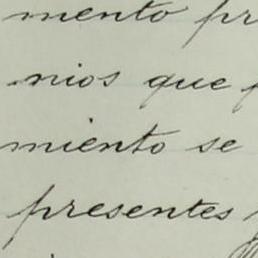 mento pr
nios que p
miento se
presentes